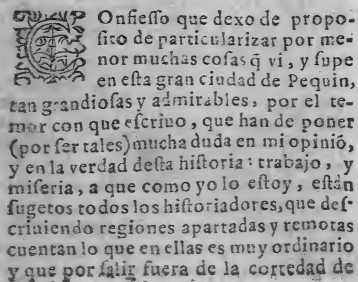 COnfieſſo que dexo de propo-
ſito de particularizar por me-
nor muchas coſas q̃ vi, y ſupe
en eſta gran ciudad de Pequin,
tan grandioſas y admirables, por el te-
mor con que eſcriuo, que han de poner
(por ſer tales) mucha duda en mi opiniõ,
y en la verdad deſta hiſtoria: trabajo, y
miſeria, a que como yo lo eſtoy, eſtàn
ſugetos todos los hiſtoriadores, que deſ-
criuiendo regiones apartadas y remotas
cuentan lo que en ellas es muy ordinario
y que por ſalir fuera de la cortedad de